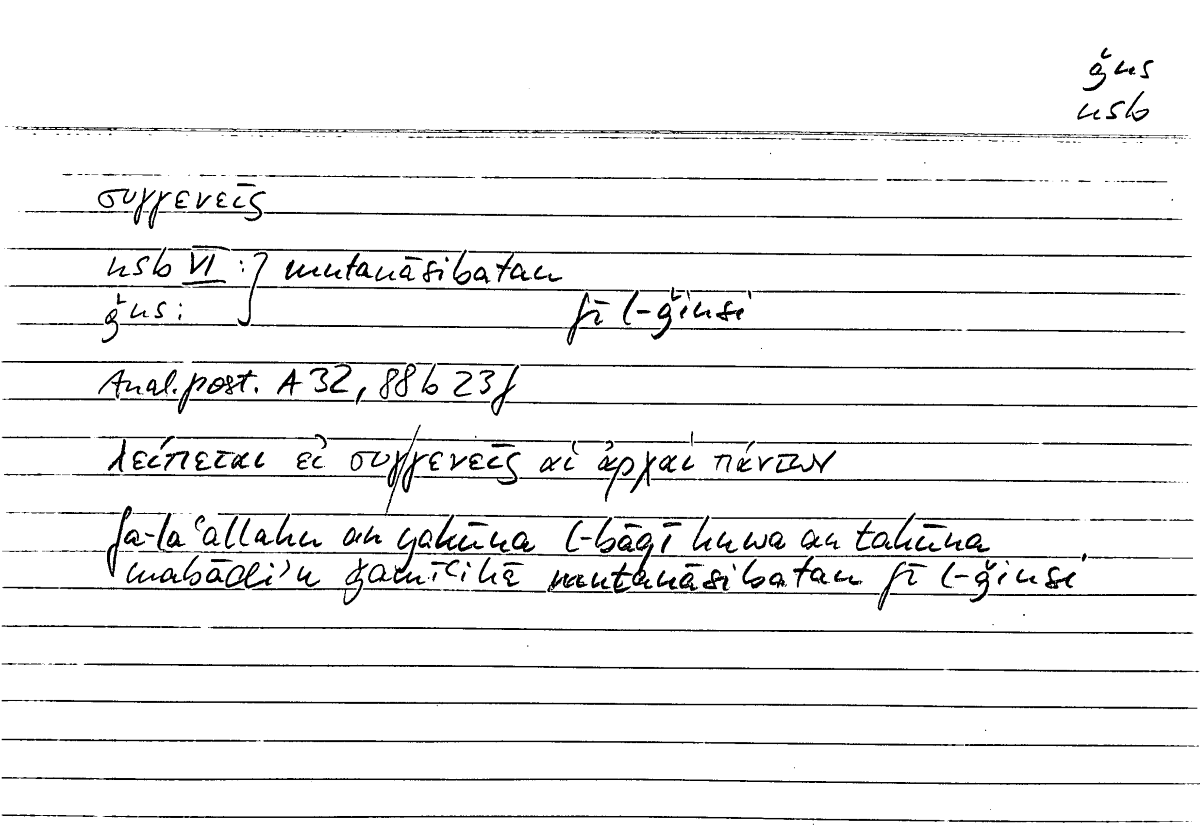 ǧns
nsb
συγγενεῖς
nsb VI : } mutanāsibatan
ǧns : fī l-ǧinsi
Anal. post. A 32, 88 b 23 f
λείπεται εἰ συγγενεῖς αἱ ἀρχαὶ πάντων
fa-laʿallahu an yakūna l-bāqī huwa an takūna
mabādiʾu ǧamīʿihā mutanāsibatan fī l-ǧinsi